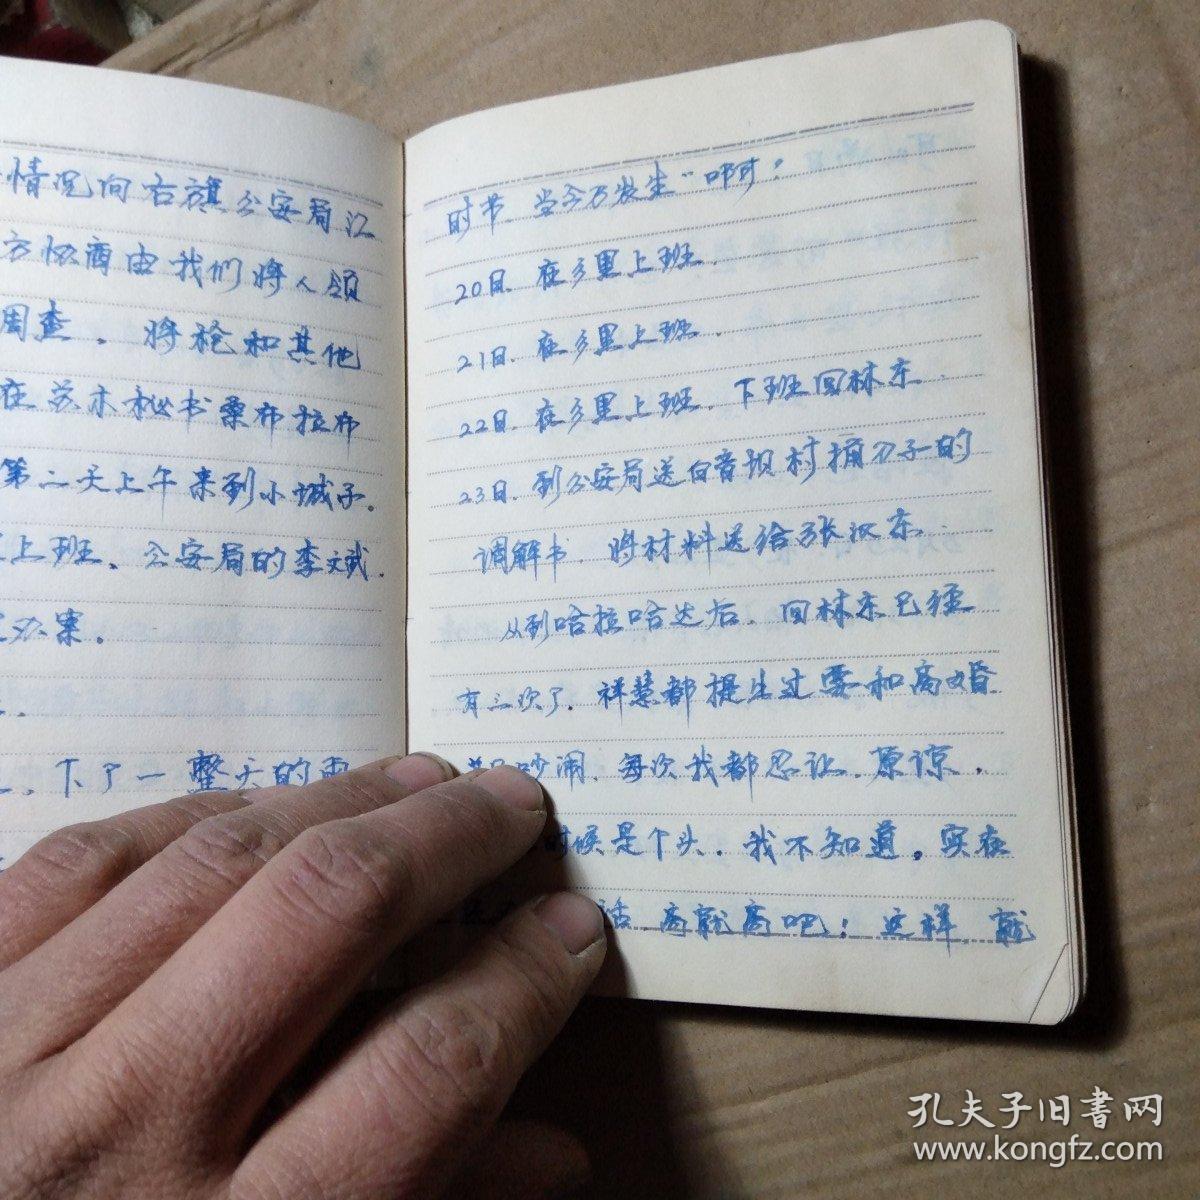 情况向右旗公安局汇
方协商由我们将人领
周查，将枪和其他
在苏木秘书桑布拉布
第二天上午来到小城子。
上班、公安局的李文武.
办案。
下了一整天的雨
时节 当今万发生"啊！
20日、在乡里上班.
21日、在乡里上班.
22日、在乡里上班、下班回林东.
23日、到公安局送白音坝村损分子的
调解书、将材料送给张汉东.
从到哈拉哈达后、回林东已经
有三次了、祥慧都提出过要和离婚
吵闹、每次我都忍让、原谅、
时候是个头、我不知道，实在
话 离就离吧！这样、就
孔夫子旧書网
www.kongfz.com